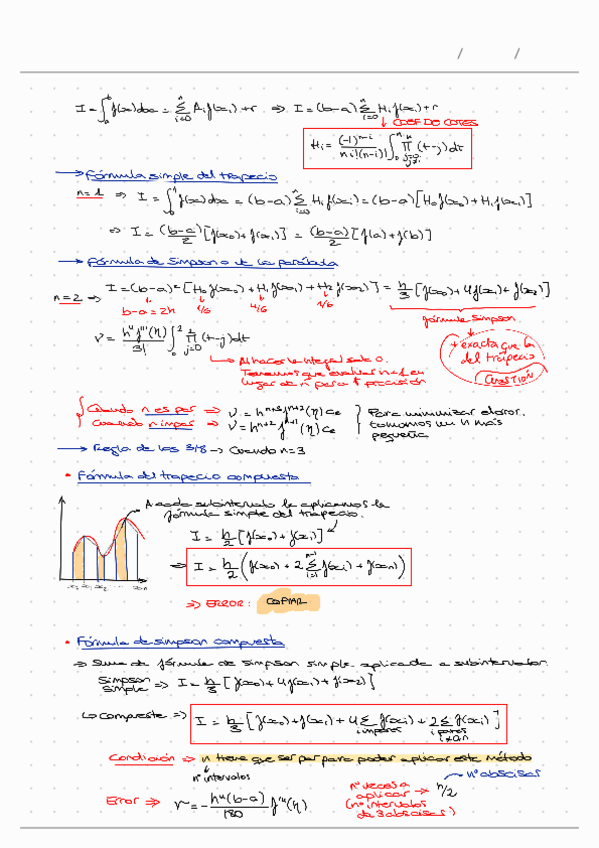 / /
I = ∫_a^b f(x)dx = Σ_{i=0}^n A_i f(x_i) + r ⇒ I = (b-a) Σ_{i=0}^n H_i f(x_i) + r
↓ COEF DE COTES
H_i = (-1)^{n-i} / (n i!(n-i)!) ∫_0^n Π_{j=0, j≠i}^n (t-j)dt
→ Fórmula simple del trapecio
n=1 ⇒ I = ∫ f(x)dx = (b-a) Σ_{i=0} H_i f(x_i) = (b-a)[H_0 f(x_0) + H_1 f(x_1)]
⇒ I = (b-a)/2 [f(x_0) + f(x_1)] = (b-a)/2 [f(a) + f(b)]
→ Fórmula de Simpson o de la parábola
n=2 ⇒ I = (b-a) [H_0 f(x_0) + H_1 f(x_1) + H_2 f(x_2)] = h/3 [f(x_0) + 4f(x_1) + f(x_2)]
b-a = 2h 1/6 4/6 1/6
fórmula Simpson
+ exacta que la del trapecio
CUESTIÓN
∫_0^2 Π_{j=0}^2 (t-j)dt
→ Al hacer la integral sale 0.
Tenemos que evaluar n+1 en
lugar de n para + precisión
Cuando n es par ⇒ r = h^{n+3} f^{n+2}(η) Ce
Cuando n impar ⇒ r = h^{n+2} f^{n+1}(η) Ce
Para minimizar el error.
tomamos un n más
pequeña
→ Regla de los 3/8 → Cuando n=3
• Fórmula del trapecio compuesta
A cada subintervalo le aplicamos la
fórmula simple del trapecio.
I = h/2 [f(x_0) + f(x_1)]
⇒ I = h/2 (f(x_0) + 2 Σ_{i=1}^{n-1} f(x_i) + f(x_n))
x_0 x_1 x_2 ... x_n
⇒ ERROR: COPIAR
• Fórmula de simpson compuesta
⇒ Suma de fórmula de simpson simple aplicada a subintervalos.
Simpson simple ⇒ I = h/3 [f(x_0) + 4f(x_1) + f(x_2)]
↳ compuesta ⇒ I = h/3 [f(x_0) + f(x_n) + 4 Σ_{i impares} f(x_i) + 2 Σ_{i pares, i≠0,n} f(x_i)]
Condición ⇒ n tiene que ser par para poder aplicar este método
nº intervalos
nº abscisas
nº veces a
aplicar → n/2
(nº intervalos
de 3 abscisas)
Error ⇒ r = - h^4(b-a)/180 f^{IV}(η)